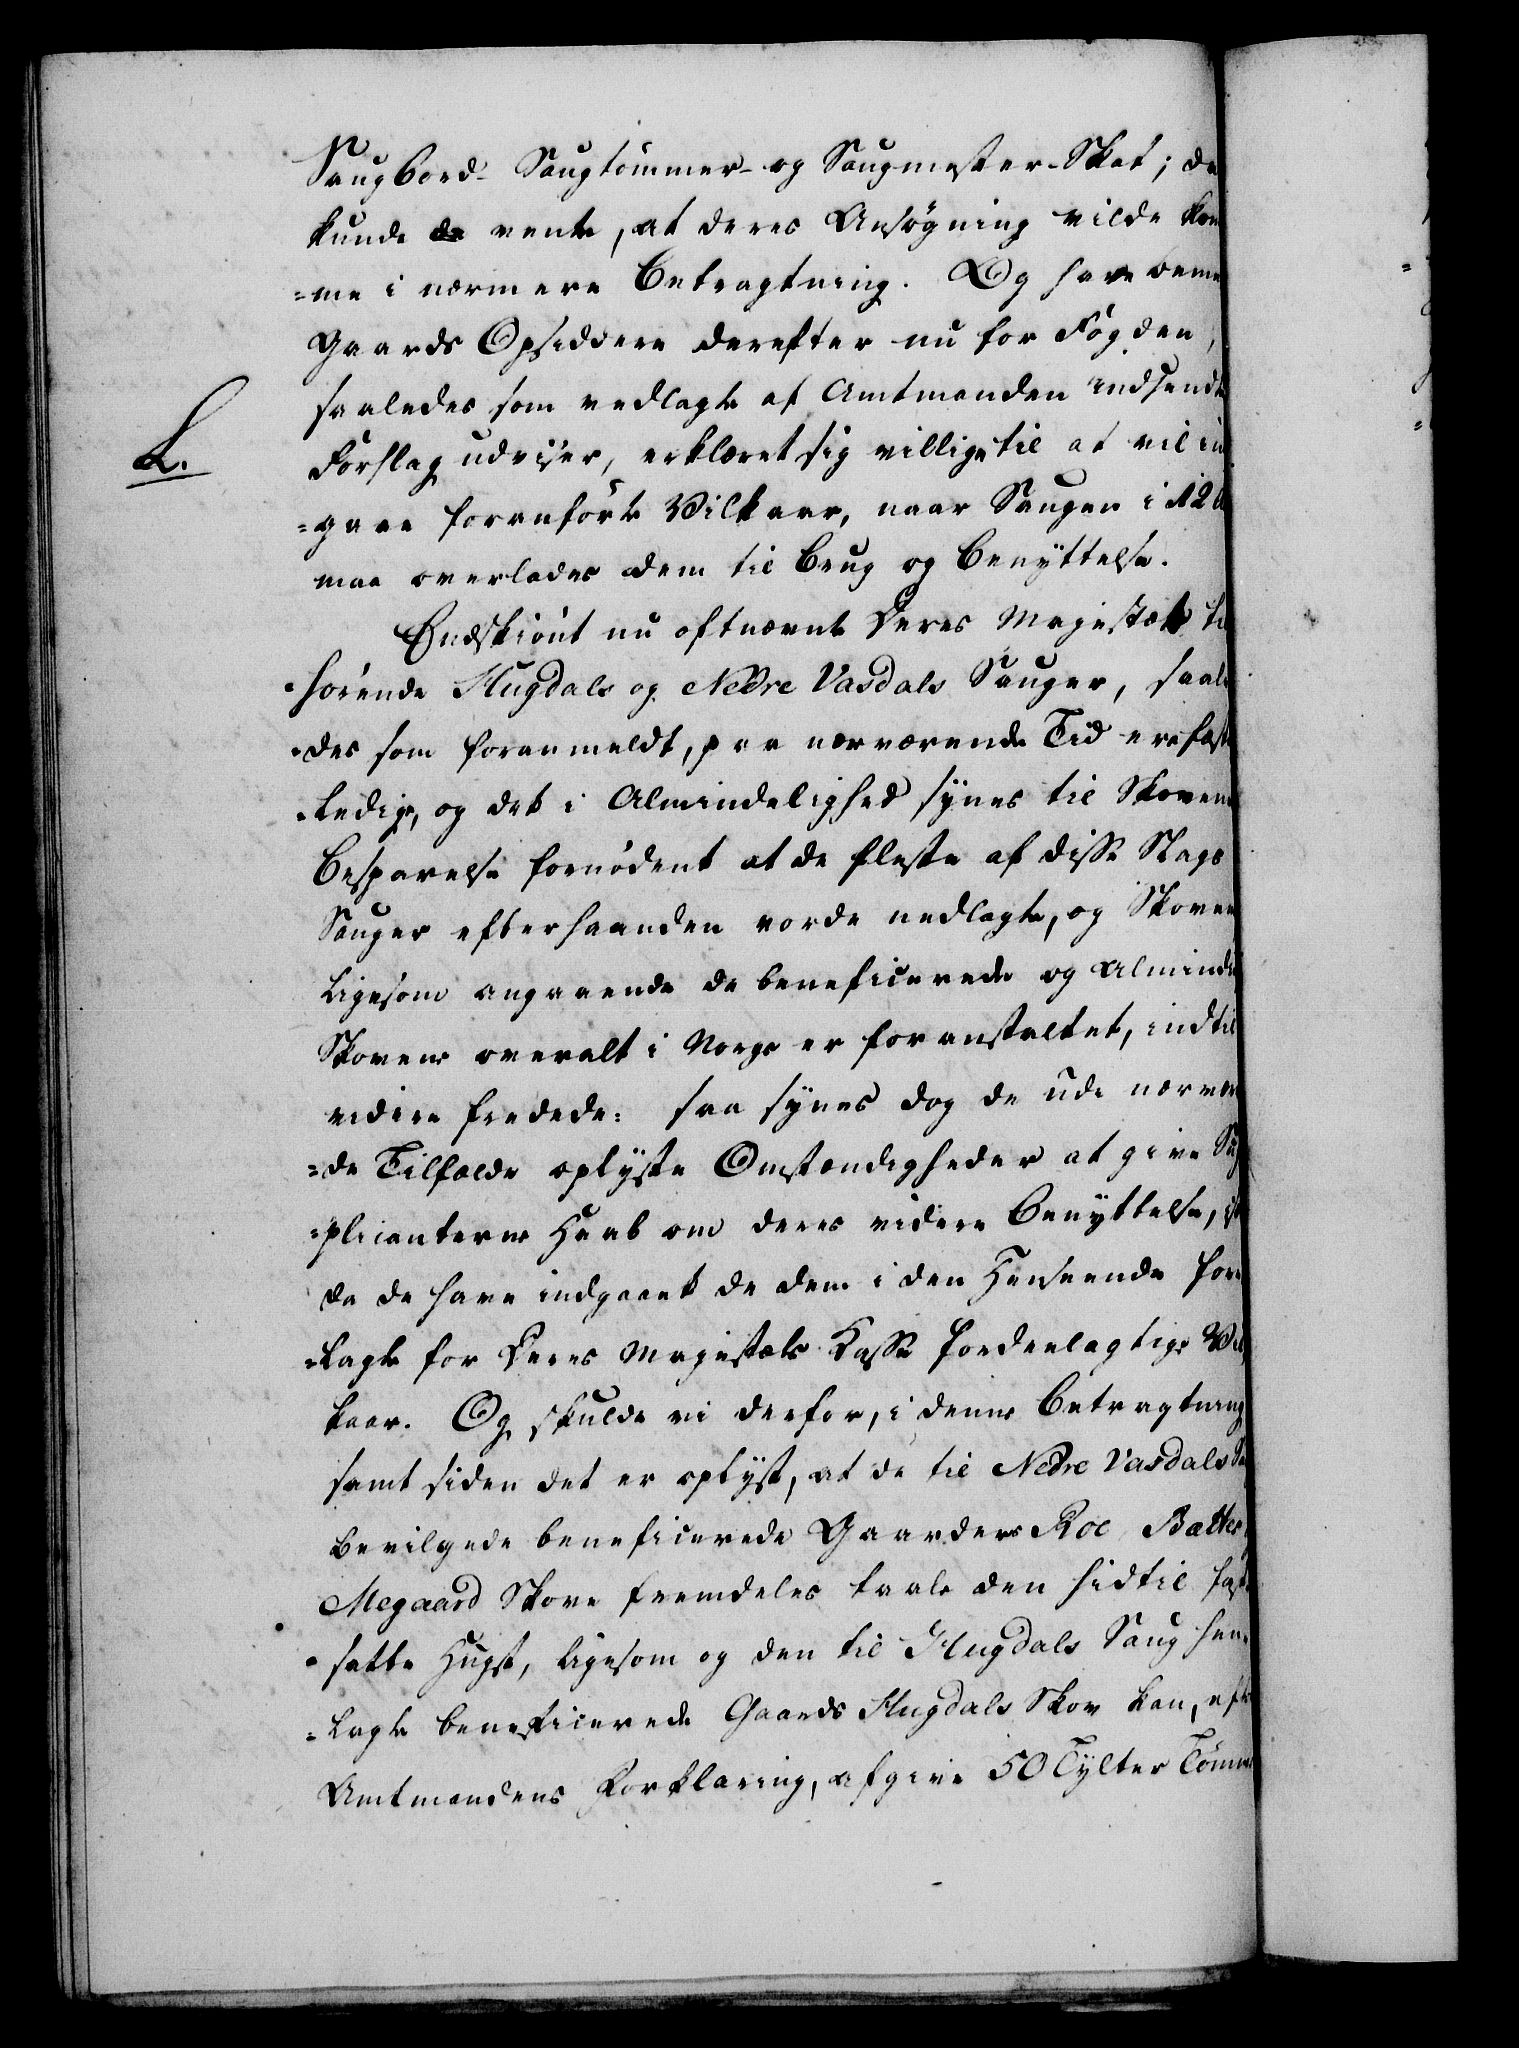 Saugbord- Saugtømmer- og Saugmester-Skat; da
kunde de vente, at deres Ansøgning vilde kom
=me i nærmere Betragtning. Og have bem
Gaards Opsiddere derefter nu for Fogden,
saaledes som vedlagte af Amtmanden indsendte
L.
Forslag udviser, erklæret sig villige til at vil in
=gaae foranførte Vilkaar, naar Saugen i 12
maa overlades dem til Brug og Benyttelse.
Endskiønt nu oftnævnte Deres Majestæt til
=hørende Hugdals og Nedre Vasdals Sauger, saale
=des som foranmeldt, paa nærværende Tid ere fæste
=ledige, og det i Almindelighed synes til Skovens
Besparelse fornødent at de fleste af disse Slags
Sauger efterhaanden vorde nedlagte, og Skoven
ligesom angaaende de beneficerede og Alminde
Skovene overalt i Norge er foranstaltet, indtil
videre fredede: saa synes dog de udi nærvæ
=de Tilfælde oplyste Omstændigheder at give Su
=plicanterne Haab om deres videre Benyttelse,
da de have indgaaet de dem i den Henseende fore
=lagte for Deres Majestæts Kasse fordeelagtige Vil
kaar. Og skulde vi derfor, i denne Betragtning
samt siden det er oplyst, at de til Nedre Vasdals Sa
bevilgede beneficerede Gaarders Roe, Batter
Megaard Skove fremdeles taale den hidtil fast
=satte Hugst, ligesom og den til Hugdals Saug hen
=lagte beneficerede Gaards Hugdals Skov kan, efter
Amtmandens Forklaring, afgive 50 Tylter Tømmer